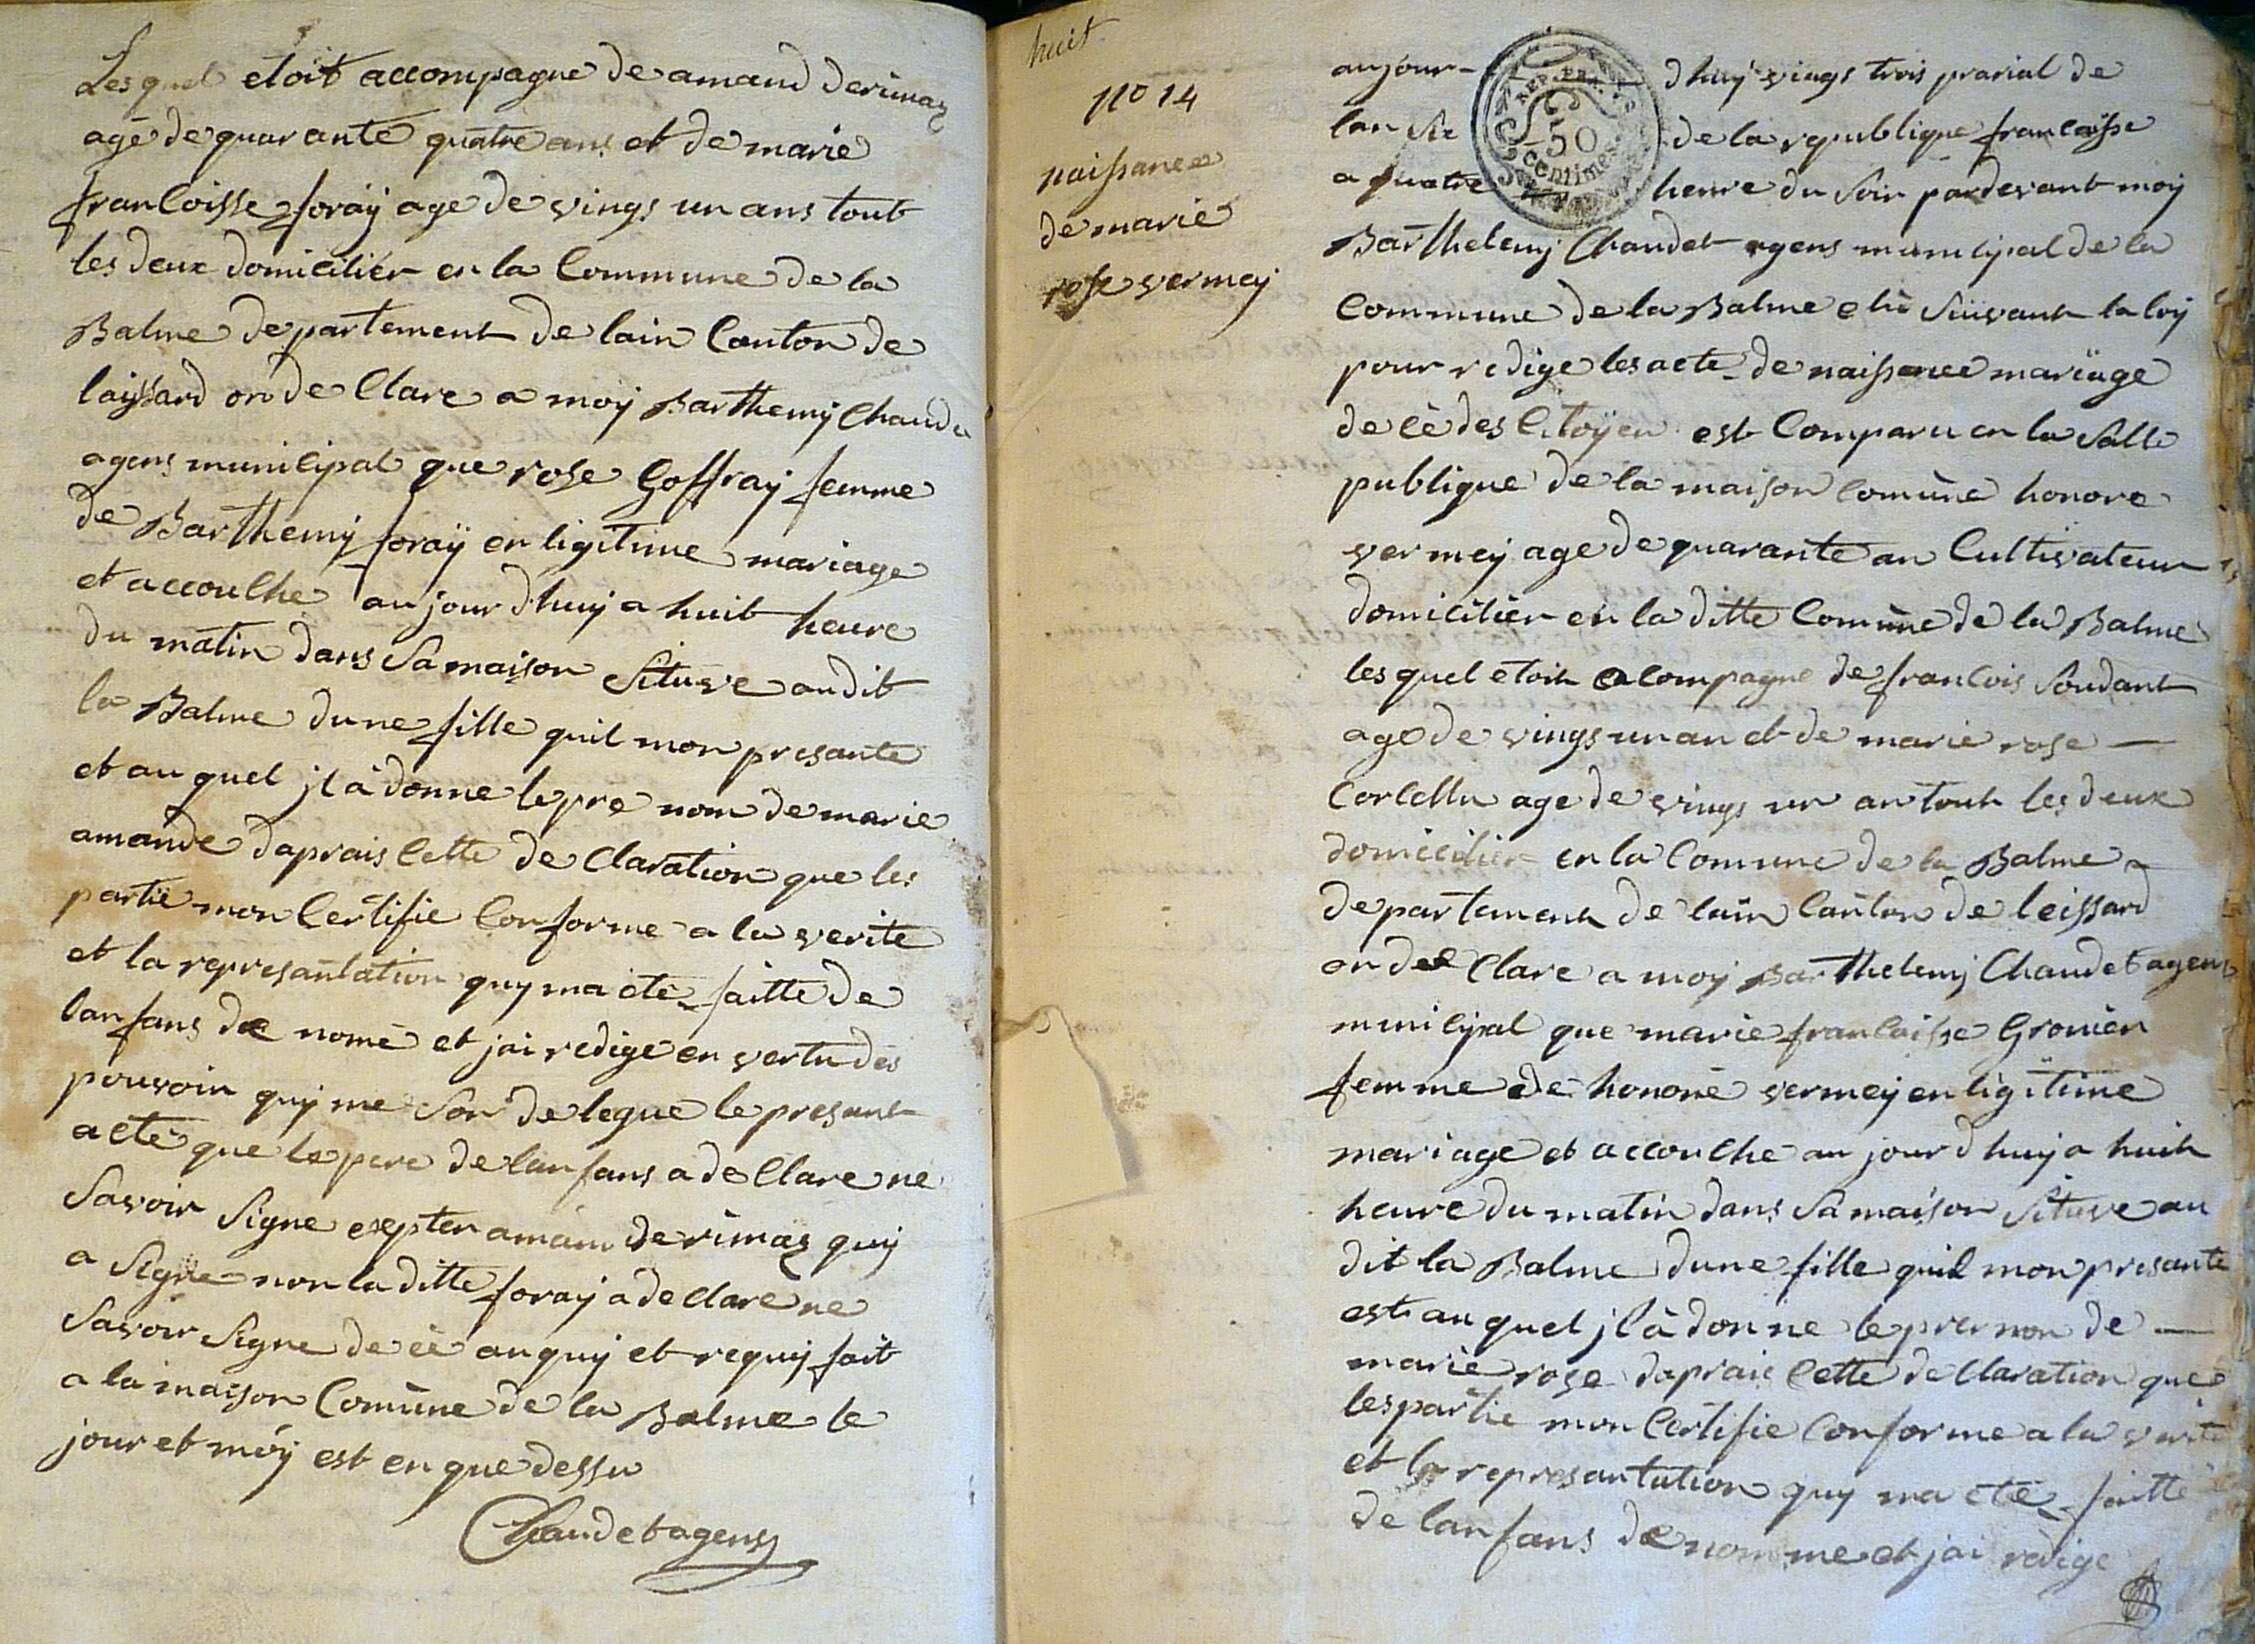 Lesquel etoit accompagne de amand derimaz
age de quarante quatre ans et de marie
francoisse foraÿ age de vings un ans tout
les deux domicilier en la Commune de la
Balme departement de lain Canton de
laissard on de Clare a moÿ Barthemÿ Chaudet
agens municipal que rose Goffray femme
de Barthemÿ foraÿ en ligitime mariage
et accouche aujourdhuy a huit heure
du matin dans Sa maison Situve audit
la Balme dune fille quil mon presante
et au quel jl à donne le pre nom de marie
amande daprais Cette de Claration que les
partie mon Certifie Conforme a la verite
et la represantation quy ma ete faitte de
lanfans de nomè et jai redige en vertu des
pouvoir quy me Son delegue le presant
acte que le pere de lanfans a de Clare ne
Savoir Signe exepter amam derimaz quÿ
a Signe non la ditte foray a de Clare ne
Savoir Signe de cè auquÿ et requÿ fait
a la maison Comùne de la Balme le
jour et moÿ est en que dessu
Chaudet agens
huit
No 14
naissance
de marie
rose vermeÿ
REP. FRA.
50
centimes
aujour- dhuÿ vings trois prarial de
lan Six de la republique francaisse
a quatre heure du Soir pardevant moÿ
Barthelemÿ Chaudet agens municipal de la
Commune de la Balme elù Süivant la loÿ
pour redige les acte de naissance mariage
de cè des Citoÿen est Comparu en la Salle
publique de la maison Comùne honore
vermeÿ age de quarante an Cultivateur
domicilier en la ditte Comùne de la Balme
lesquel etoit acompagne de francois Soudant
age de vings un an et de marie rose —
age de vings un an tout les deux
domicilier en la Comune de la Balme
departement de lain Canton de leissard
on de Clare a moÿ Barthelemÿ Chaudet agens
municipal que marie francaisse Gronier
femme de honorè vermeÿ en ligitime
mariage et accouche au jourdhuÿ a huit
heure du matin dans Sa maison Situve au
dit la Balme dune fille quil mon presante
est au quel jl à donne le prer non de —
marie rose daprais Cette de Claration que
les partie mon Certifie Conforme a la verite
et la represantation quy ma ete faitte
de lanfans de nomme et jai redige